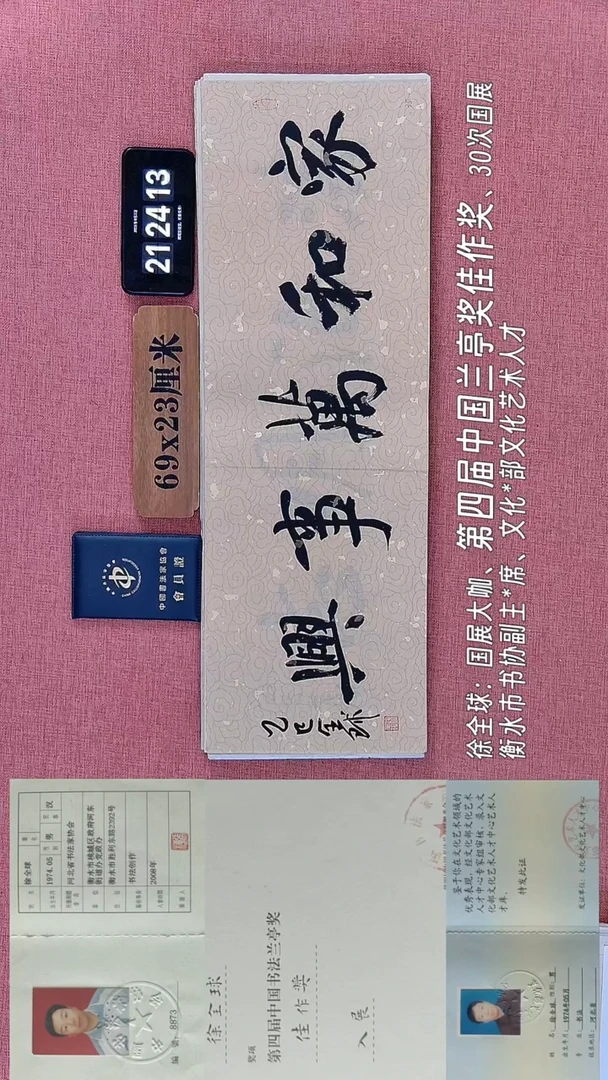 家和萬事興
乙巳全球
21 24 13
69x23厘米
中國書法家協會
會員證
徐全球：国展大咖、第四届中国兰亭奖佳作奖、30次国展
衡水市书协副主*席、文化*部文化艺术人才
徐全球
1974.05 男 汉
河北省书法家协会
衡水市桃城区政府河东
街道办党政办
衡水市胜利东路2202号
书法创作
2008年
编号：8873
徐全球
奖项
第四届中国书法兰亭奖
佳作奖
入展
鉴于你在文化艺术领域的
优秀表现，经文化部文化艺术
人才中心专家组审核，录入文
化部文化艺术人才中心艺术人
才库。
特发此证
发证单位：文化部文化艺术人才中心
姓名：徐全球 性别：男
出生年月：1974年05月
专业：书法